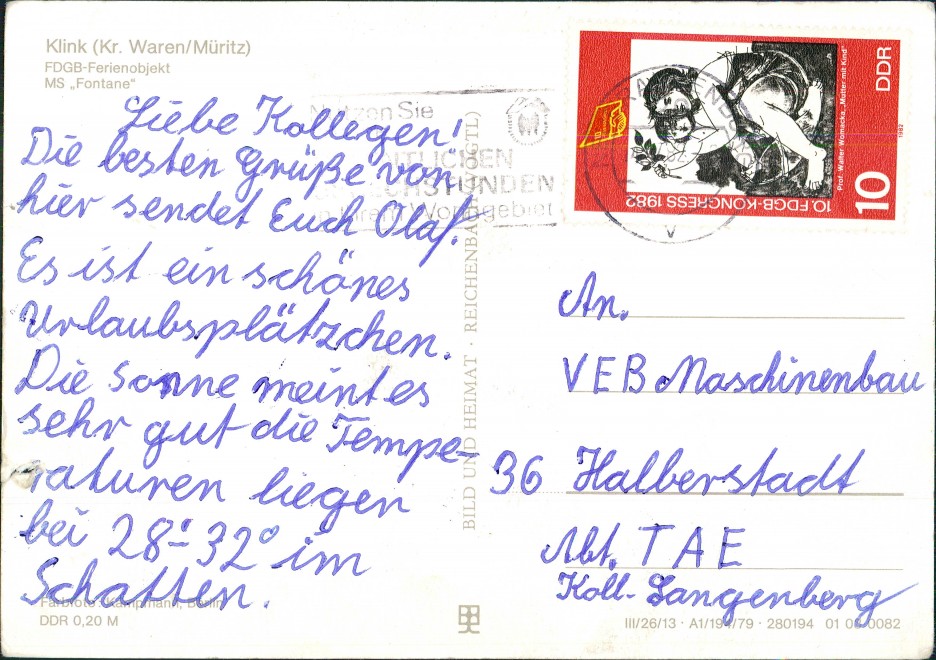 Klink (Kr. Waren/Müritz)
FDGB-Ferienobjekt
MS „Fontane“
Liebe Kollegen!
Die besten Grüße von
hier sendet Euch Olaf.
Es ist ein schönes
Urlaubsplätzchen.
Die Sonne meint es
sehr gut die Tempe-
raturen liegen
bei 28°-32° im
Schatten.
Farbfoto: Kampmann, Berlin
DDR 0,20 M
Nutzen Sie
SPRECHSTUNDEN
in Ihrem Wohngebiet
BILD UND HEIMAT · REICHENBACH (VOGTL)
10. FDGB-KONGRESS 1982
10
DDR
Prof. Walter Womacka, „Mutter mit Kind“
1982
An.
VEB Maschinenbau
36 Halberstadt
Abt. TAE
Koll. Langenberg
III/26/13 · A1/191/79 · 280194 01 0082